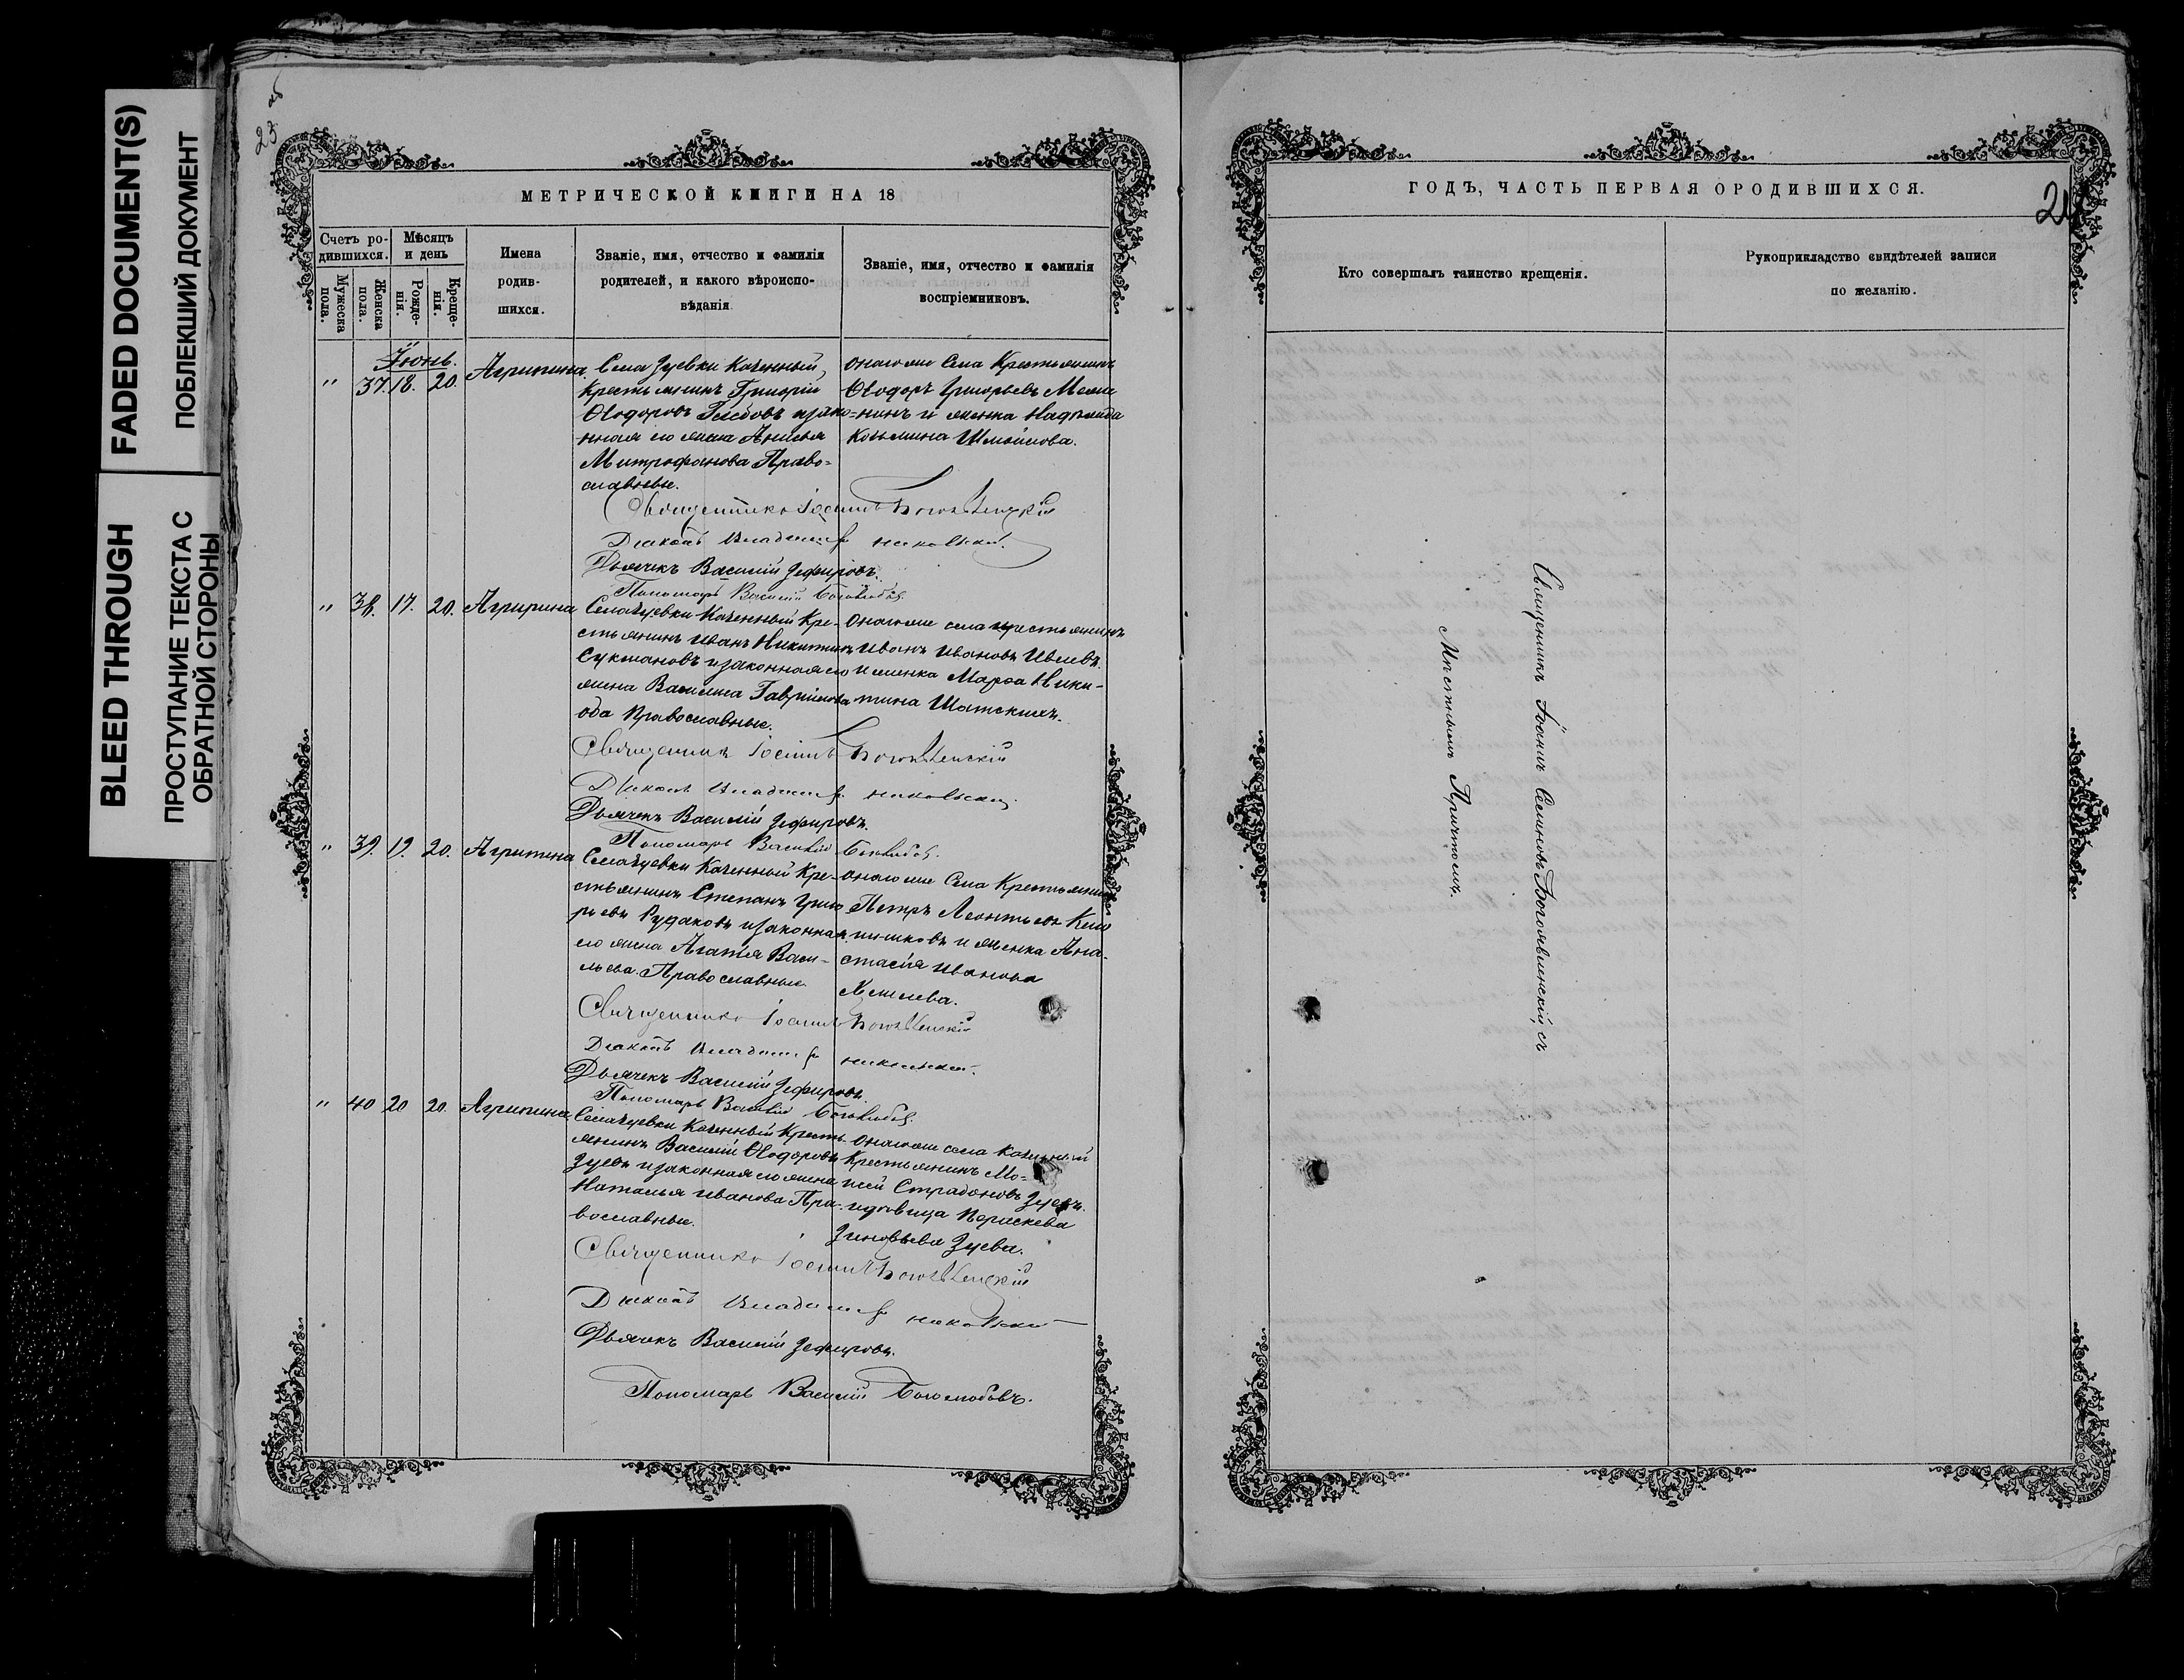 FADED DOCUMENT(S)
ПОБЛЕКШИЙ ДОКУМЕНТ
BLEED THROUGH
ПРОСТУПАНИЕ ТЕКСТА С
ОБРАТНОЙ СТОРОНЫ
23 об
МЕТРИЧЕСКОЙ КНИГИ НА 18
Счетъ ро-
дившихся.
Мужеска
пола.
Женска
пола.
Мѣсяцъ
и день
Рожде-
нія.
Креще-
нія.
Имена
родив-
шихся.
Званіе, имя, отчество и фамилія
родителей, и какого вѣроиспо-
вѣданія
Званіе, имя, отчество и фамилія
воспріемниковъ.
Іюнь.
" 37. 18. 20. Агрипина
Села Зуевки Казенный
крестьянинъ Григорій
Ѳеодоровъ Глебовъ изако-
нная его жена Анисья
Митрофанова Право-
славные.
оногоже села Крестьянинъ
Ѳеодоръ Григорьевъ
и женка
Козьмина
Священникъ Іоаннъ Богоявленскій
Діаконъ Владиміръ Никольскій.
Дьячекъ Василій Зефировъ.
Пономарь Василій Боголюбовъ
" 38. 17. 20. Агрипина
Села Зуевки Казенный Кре-
стьянинъ Иванъ Никитинъ
Сукмановъ изаконная его
жена Василиса Гаврилова
оба Православные.
оногоже села крестьянинъ
Иванъ Ивановъ Ивлевъ.
и женка Марѳа Ники-
тина Шатскихъ.
Священникъ Іоаннъ Богоявленскій
Діаконъ Владиміръ Никольскій.
Дьячекъ Василій Зефировъ.
Пономарь Василій Боголюбовъ.
" 39. 19. 20. Агрипина
Села Зуевки Казенный Кре-
стьянинъ Степанъ Григо
рьевъ Рудаковъ изаконная
его жена Агаѳія Васи-
льева. Православные
оногоже Села Крестьянинъ
Петръ Леонтьевъ
и женка Ана-
стасія Иванова
Священникъ Іоаннъ Богоявленскій
Діаконъ Владиміръ Никольскій.
Дьячекъ Василій Зефировъ.
Пономарь Василій Боголюбовъ.
" 40 20 20. Агрипина.
Села Зуевки Казенный Кресть
янинъ Василій Ѳеодоровъ
Зуевъ изаконная его жена
Наталья Иванова Пра-
вославные.
оногоже села Казенный
Крестьянинъ Мо-
исей Спиридоновъ Зуевъ.
ивдовица Параскева
Зиновьева Зуева.
Священникъ Іоаннъ Богоявленскій
Діаконъ Владиміръ Никольскій
Дьячекъ Василій Зефировъ.
Пономарь Василій Боголюбовъ.
ГОДЪ, ЧАСТЬ ПЕРВАЯ О РОДИВШИХСЯ.
Кто совершалъ таинство крещенія.
Рукоприкладство свидѣтелей записи
по желанію.
Священникъ Іоаннъ Семеновъ Богоявленскій, съ
Мѣстнымъ Причтомъ.